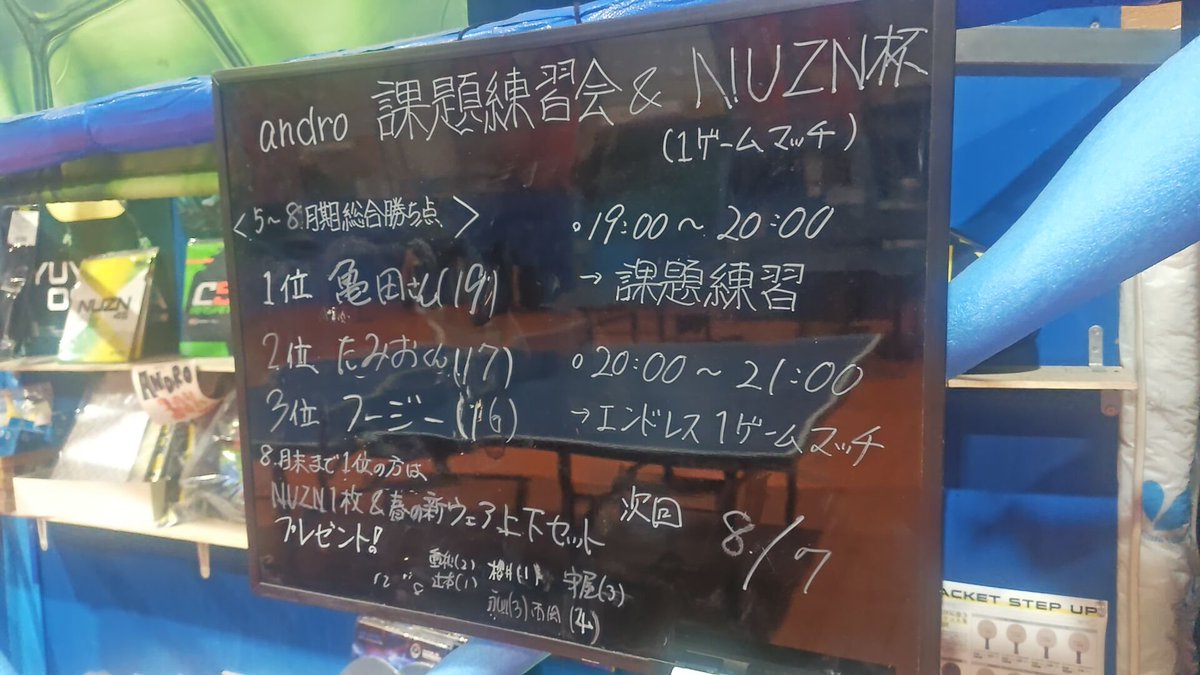 andro 課題練習会 & NUZN杯
(1ゲームマッチ)
<5〜8月期総合勝ち点>
1位 亀田さん(19)
2位 たみおくん(17)
3位 フージー(16)
8月末まで1位の方は
NUZN1枚&春の新ウェア上下セット
プレゼント!
○19:00〜20:00
→課題練習
○20:00〜21:00
→エンドレス1ゲームマッチ
次回 8/7
重松(2) 櫻井(1) 守屋(3)
辻本(1) 永山(3) 市岡(4)
NUZN
ANDRO
ACKET STEP UP